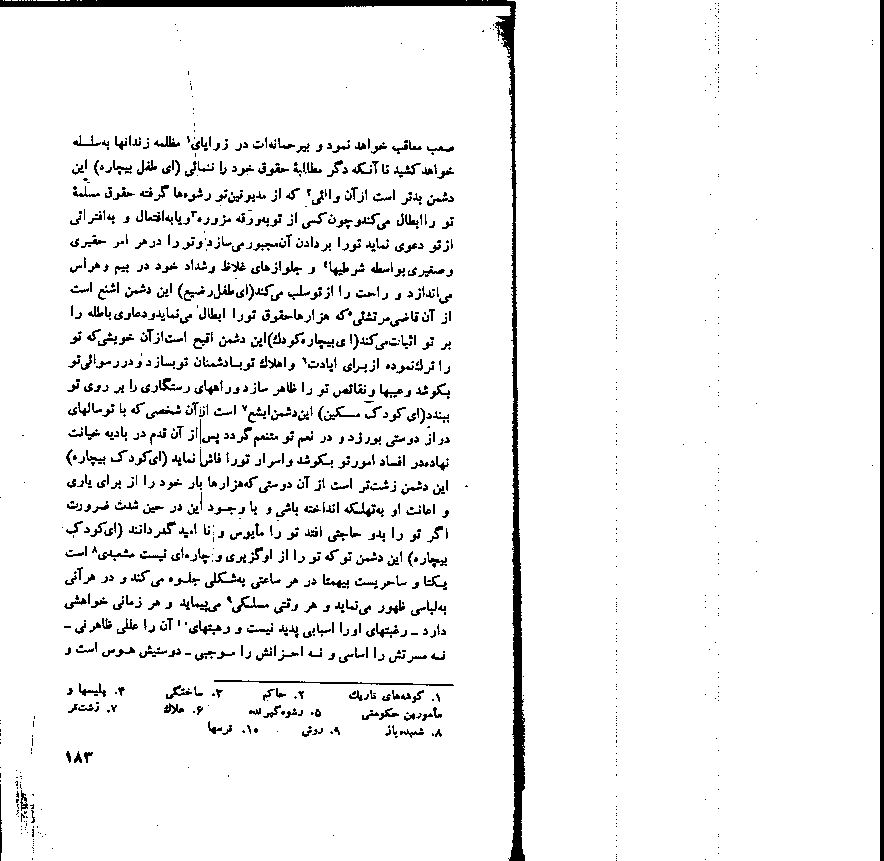 صعب معاقب خواهد نمود و بیرحمانه‌ات در زوایای۱ مظلمه زندانها به‌سلسله
خواهد کشید تا آنکه دگر مطالبهٔ حقوق خود را ننمائی (ای طفل بیچاره) این
دشمن بدتر است از آن والئی۲ که از مدیونین تو رشوه‌ها گرفته حقوق مسلّمهٔ
تو را ابطال می‌کند و چون کسی از تو به‌ورقه مزوره۳ و یا به‌افتعال و به‌افترائی
از تو دعوی نماید تو را بر دادن آن مجبور می‌سازد و تو را در هر امر حقیری
و صغیری بواسطه شرطیها۴ و جلوازهای غلاظ و شداد خود در بیم و هراس
می‌اندازد و راحت را از تو سلب می‌کند (ای طفل رضیع) این دشمن اشنع است
از آن قاضی مرتشئی۵ که هزارها حقوق تو را ابطال می‌نماید و دعاوی باطله را
بر تو اثبات می‌کند (ای بیچاره کودك) این دشمن اقبح است از آن خویشی که تو
را ترك نموده از برای ابادت۶ و اهلاك تو با دشمنان تو بسازد و در رسوائی تو
بکوشد و عیبها و نقائص تو را ظاهر سازد و راههای رستگاری را بر روی تو
ببندد (ای کودک مسکین) این دشمن ابشع۷ است از آن شخصی که با تو سالهای
دراز دوستی بورزد و در نعم تو متنعم گردد پس از آن قدم در بادیه خیانت
نهاده در افساد امور تو بکوشد و اسرار تو را فاش نماید (ای کودک بیچاره)
این دشمن زشت‌تر است از آن دوستی که هزارها بار خود را از برای یاری
و اعانت او به‌تهلکه انداخته باشی و با وجود این در حین شدت ضرورت
اگر تو را بدو حاجتی افتد تو را مأیوس و نا امید گرداند (ای کودک
بیچاره) این دشمن تو که تو را از او گزیری و چاره‌ای نیست مشعبدی۸ است
یکتا و ساحریست بیهمتا در هر ساعتی به‌شکلی جلوه می کند و در هر آنی
به‌لباسی ظهور می‌نماید و هر وقتی مسلکی۹ می‌پیماید و هر زمانی خواهشی
دارد ـ رغبتهای او را اسبابی پدید نیست و رهبتهای۱۰ آن را عللی ظاهر نی ـ
نه مسرتش را اساسی و نه احزانش را موجبی ـ دوستیش هوس است و
۱. گوشه‌های تاریك ۲. حاکم ۳. ساختگی ۴. پلیسها و
مأمورین حکومتی ۵. رشوه‌گیرنده ۶. هلاك ۷. زشت‌تر
۸. شعبده‌باز ۹. روش ۱۰. ترسها
۱۸۳